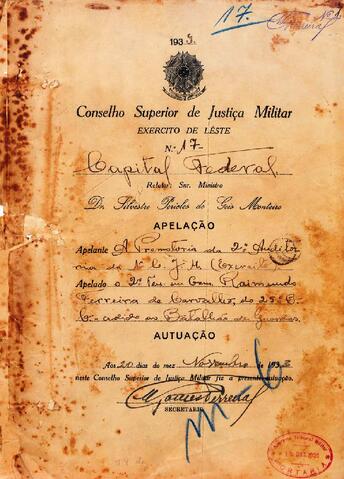 17.
1933.
Conselho Superior de Justiça Militar
EXERCITO DE LÉSTE
N.º 17
Capital Federal
Relator: Snr. Ministro
Dr. Silvestre Pericles de Goes Monteiro
APELAÇÃO
Apelante A Promotoria da 2ª Auditoria da 1ª C. J. M. (Exercito)
Apelado o 2º Ten. em Com. Raimundo
Ferreira de Carvalho, do 25º B.
C. adido ao Batalhão de Guardas.
AUTUAÇÃO
Aos 20 dias do mez Novembro de 1933
neste Conselho Superior de Justiça Militar fiz a presente autuação.
SECRETARIO
PORTARIA